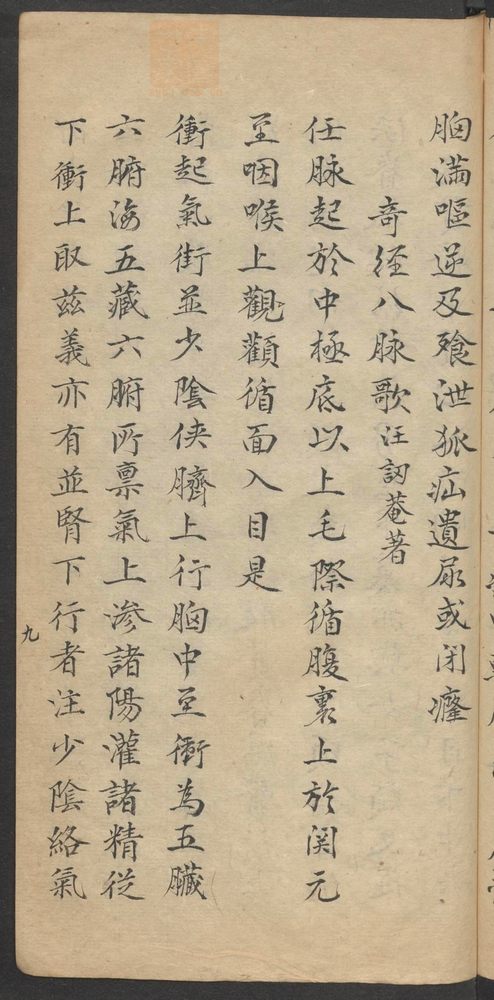 胸滿嘔逆及飱泄狐疝遺尿或閉癃
奇經八脉歌汪訒菴著
任脉起於中極底以上毛際循腹裏上於関元
至咽喉上觀顴循面入目是
衝起氣街並少陰俠臍上行胸中至衝為五臓
六腑海五藏六腑所禀氣上渗諸陽灌諸精從
下衝上取兹義亦有並腎下行者注少陰絡氣
九